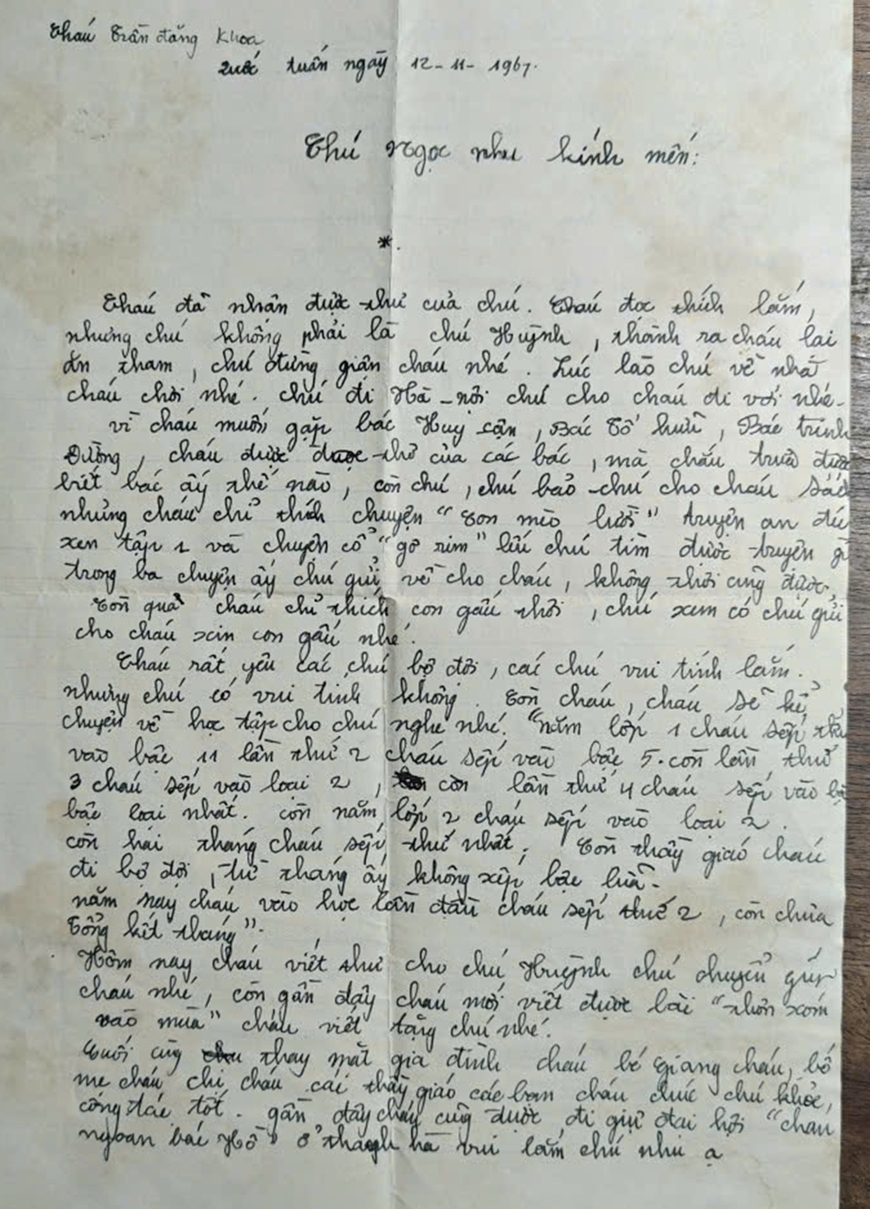 Cháu Trần đăng Khoa
Quốc tuấn ngày 12-11-1967.
Chú Ngọc như kính mến:
*.
Cháu đã nhận được thư của chú. Cháu đọc thích lắm,
nhưng chú không phải là chú Huỳnh, thành ra cháu lại
ăn tham, chú đừng giận cháu nhé. Lúc lào chú về nhà
cháu chơi nhé. chú đi Hà-nội chú cho cháu đi với nhé-
vì cháu muốn gặp bác Huy cận, Bác Tố hữu, Bác trinh
Đường, cháu được thơ của các bác, mà cháu trưa được
biết bác ấy thế nào, còn chú, chú bảo chú cho cháu sác
nhưng cháu chỉ thích chuyện "con mèo lười" truyện an đéc
xen tập 1 và chuyện cổ "gờ rim" lếu chú tìm được truyện gì
trong ba chuyện ấy chú gửi về cho cháu, không thôi cũng được.
Còn quà cháu chỉ thích con gấu thôi, chú xem có chú gửi
cho cháu xin con gấu nhé.
Cháu rất yêu các chú bộ đội, các chú vui tính lắm.
nhưng chú có vui tính không. Còn cháu, cháu sẽ kể
chuyện về học tập cho chú nghe nhé. "Năm lớp 1 cháu sếp
vào bậc 11 lần thứ 2 cháu sếp vào bậc 5. còn lần thứ
3 cháu sếp vào loại 2, còn lần thứ 4 cháu sếp vào
bậc loại nhất. còn năm lớp 2 cháu sếp vào loại 2.
còn hai tháng cháu sếp thứ nhất. Còn thầy giáo cháu
đi bộ đội, từ tháng ấy không xếp bậc lữa.
năm nay cháu vào học lần đầu cháu sếp thứ 2, còn chưa
tổng kết tháng".
Hôm nay cháu viết thư cho chú Huỳnh chú chuyển giúp
cháu nhé, còn gần đây cháu mới viết được bài "thôn xóm
vào mùa" cháu viết tặng chú nhé.
Cuối cùng thay mặt gia đình cháu bé Giang cháu, bố
mẹ cháu chị cháu các thầy giáo các bạn cháu chúc chú khỏe,
công tác tốt. gần đây cháu cũng được đi giự đại hội "cháu
ngoan bác Hồ" ở thanh hà vui lắm chú như ạ